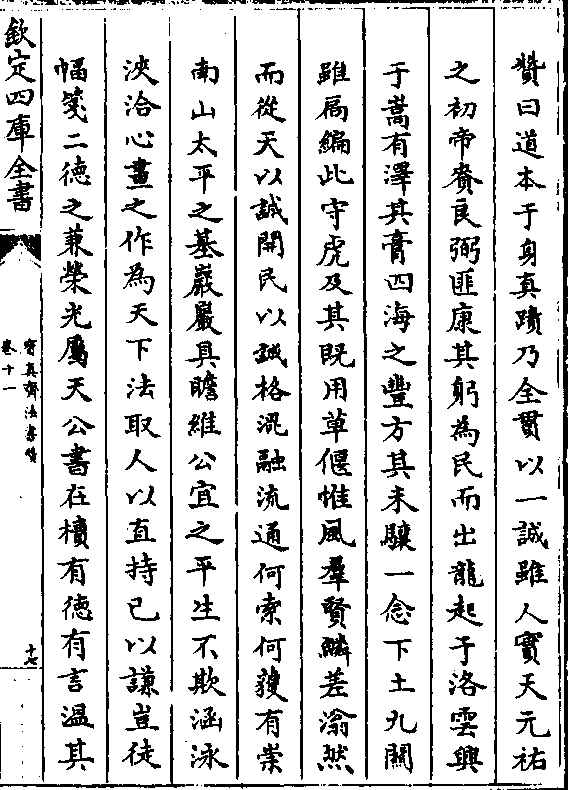 贊曰道本于身真蹟乃全貫以一誠雖人實天元祐
之初帝賚良弼匪康其躬為民而出龍起于洛雲興
于嵩有澤其膏四海之豐方其未驤一念下土九關
雖扃編此守虎及其既用草偃惟風羣賢鱗差滃然
而從天以誠開民以誠格混融流通何索何獲有崇
南山太平之基巖巖具瞻維公宜之平生不欺涵泳
浹洽心畫之作為天下法取人以直持已以謙豈徒
幅箋二德之兼榮光屬天公書在櫝有德有言溫其
欽定四庫全書
寳真齋法書贊
卷十一
十七